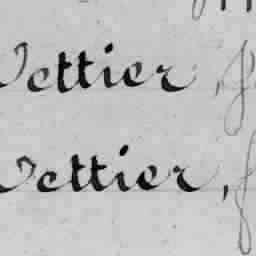 Vettier,
Vettier,